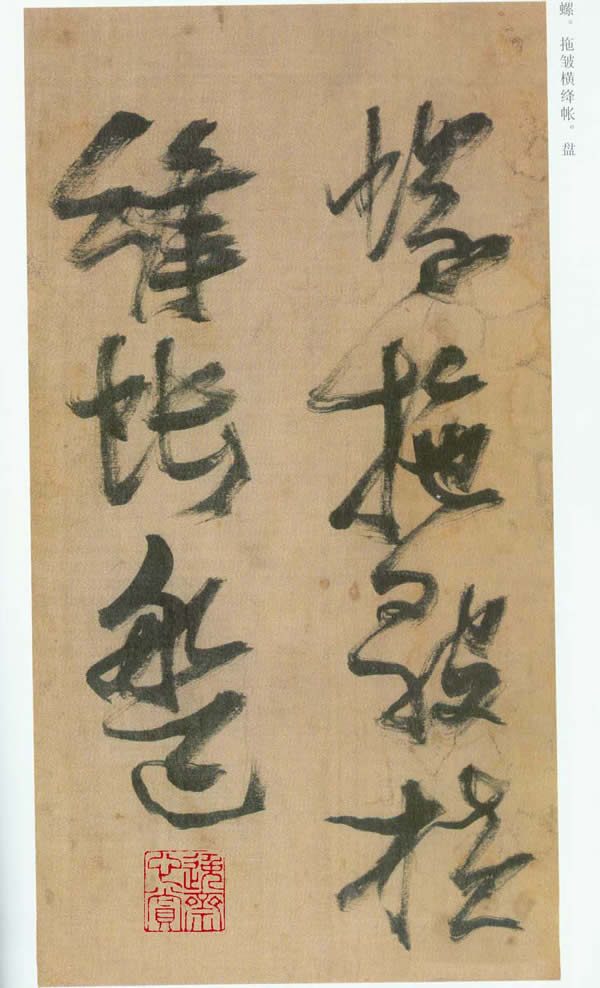 螺。拖皱横绛帐。盘
螺拖皱横
绛帐盘